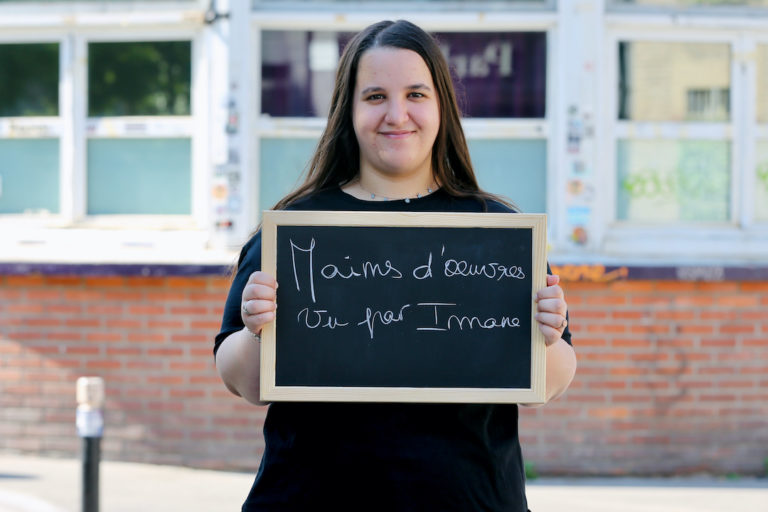 Mains d'oeuvres
Vu par Imane